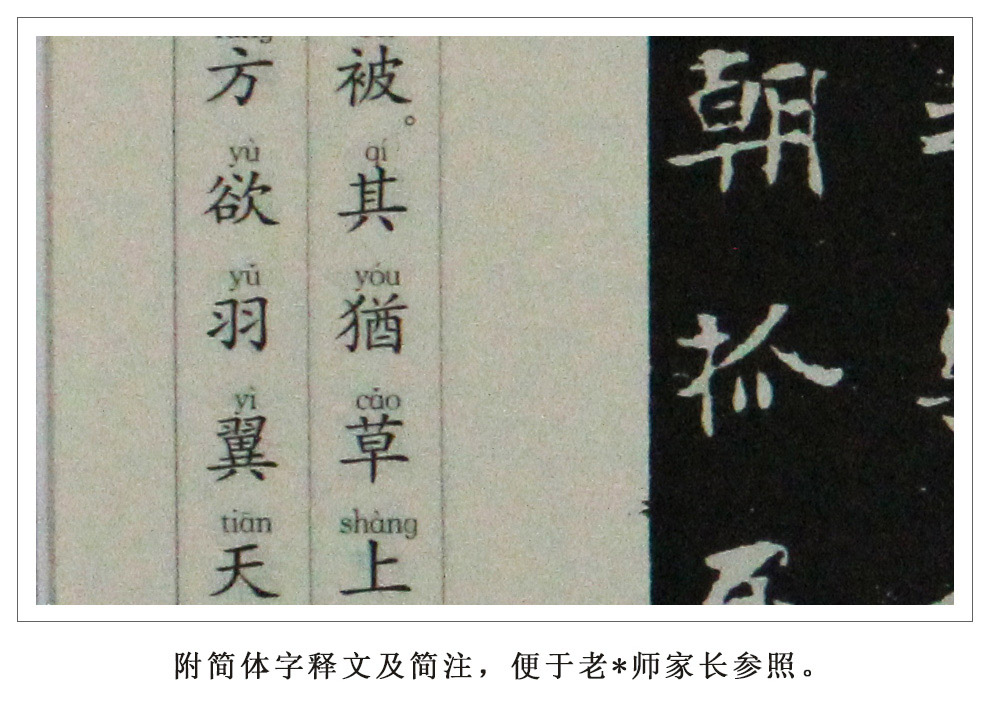 朝
被。qí 其 yóu 猶 cǎo 草 shàng 上
方 yù 欲 yǔ 羽 yì 翼 tiān 天
附简体字释文及简注，便于老*师家长参照。